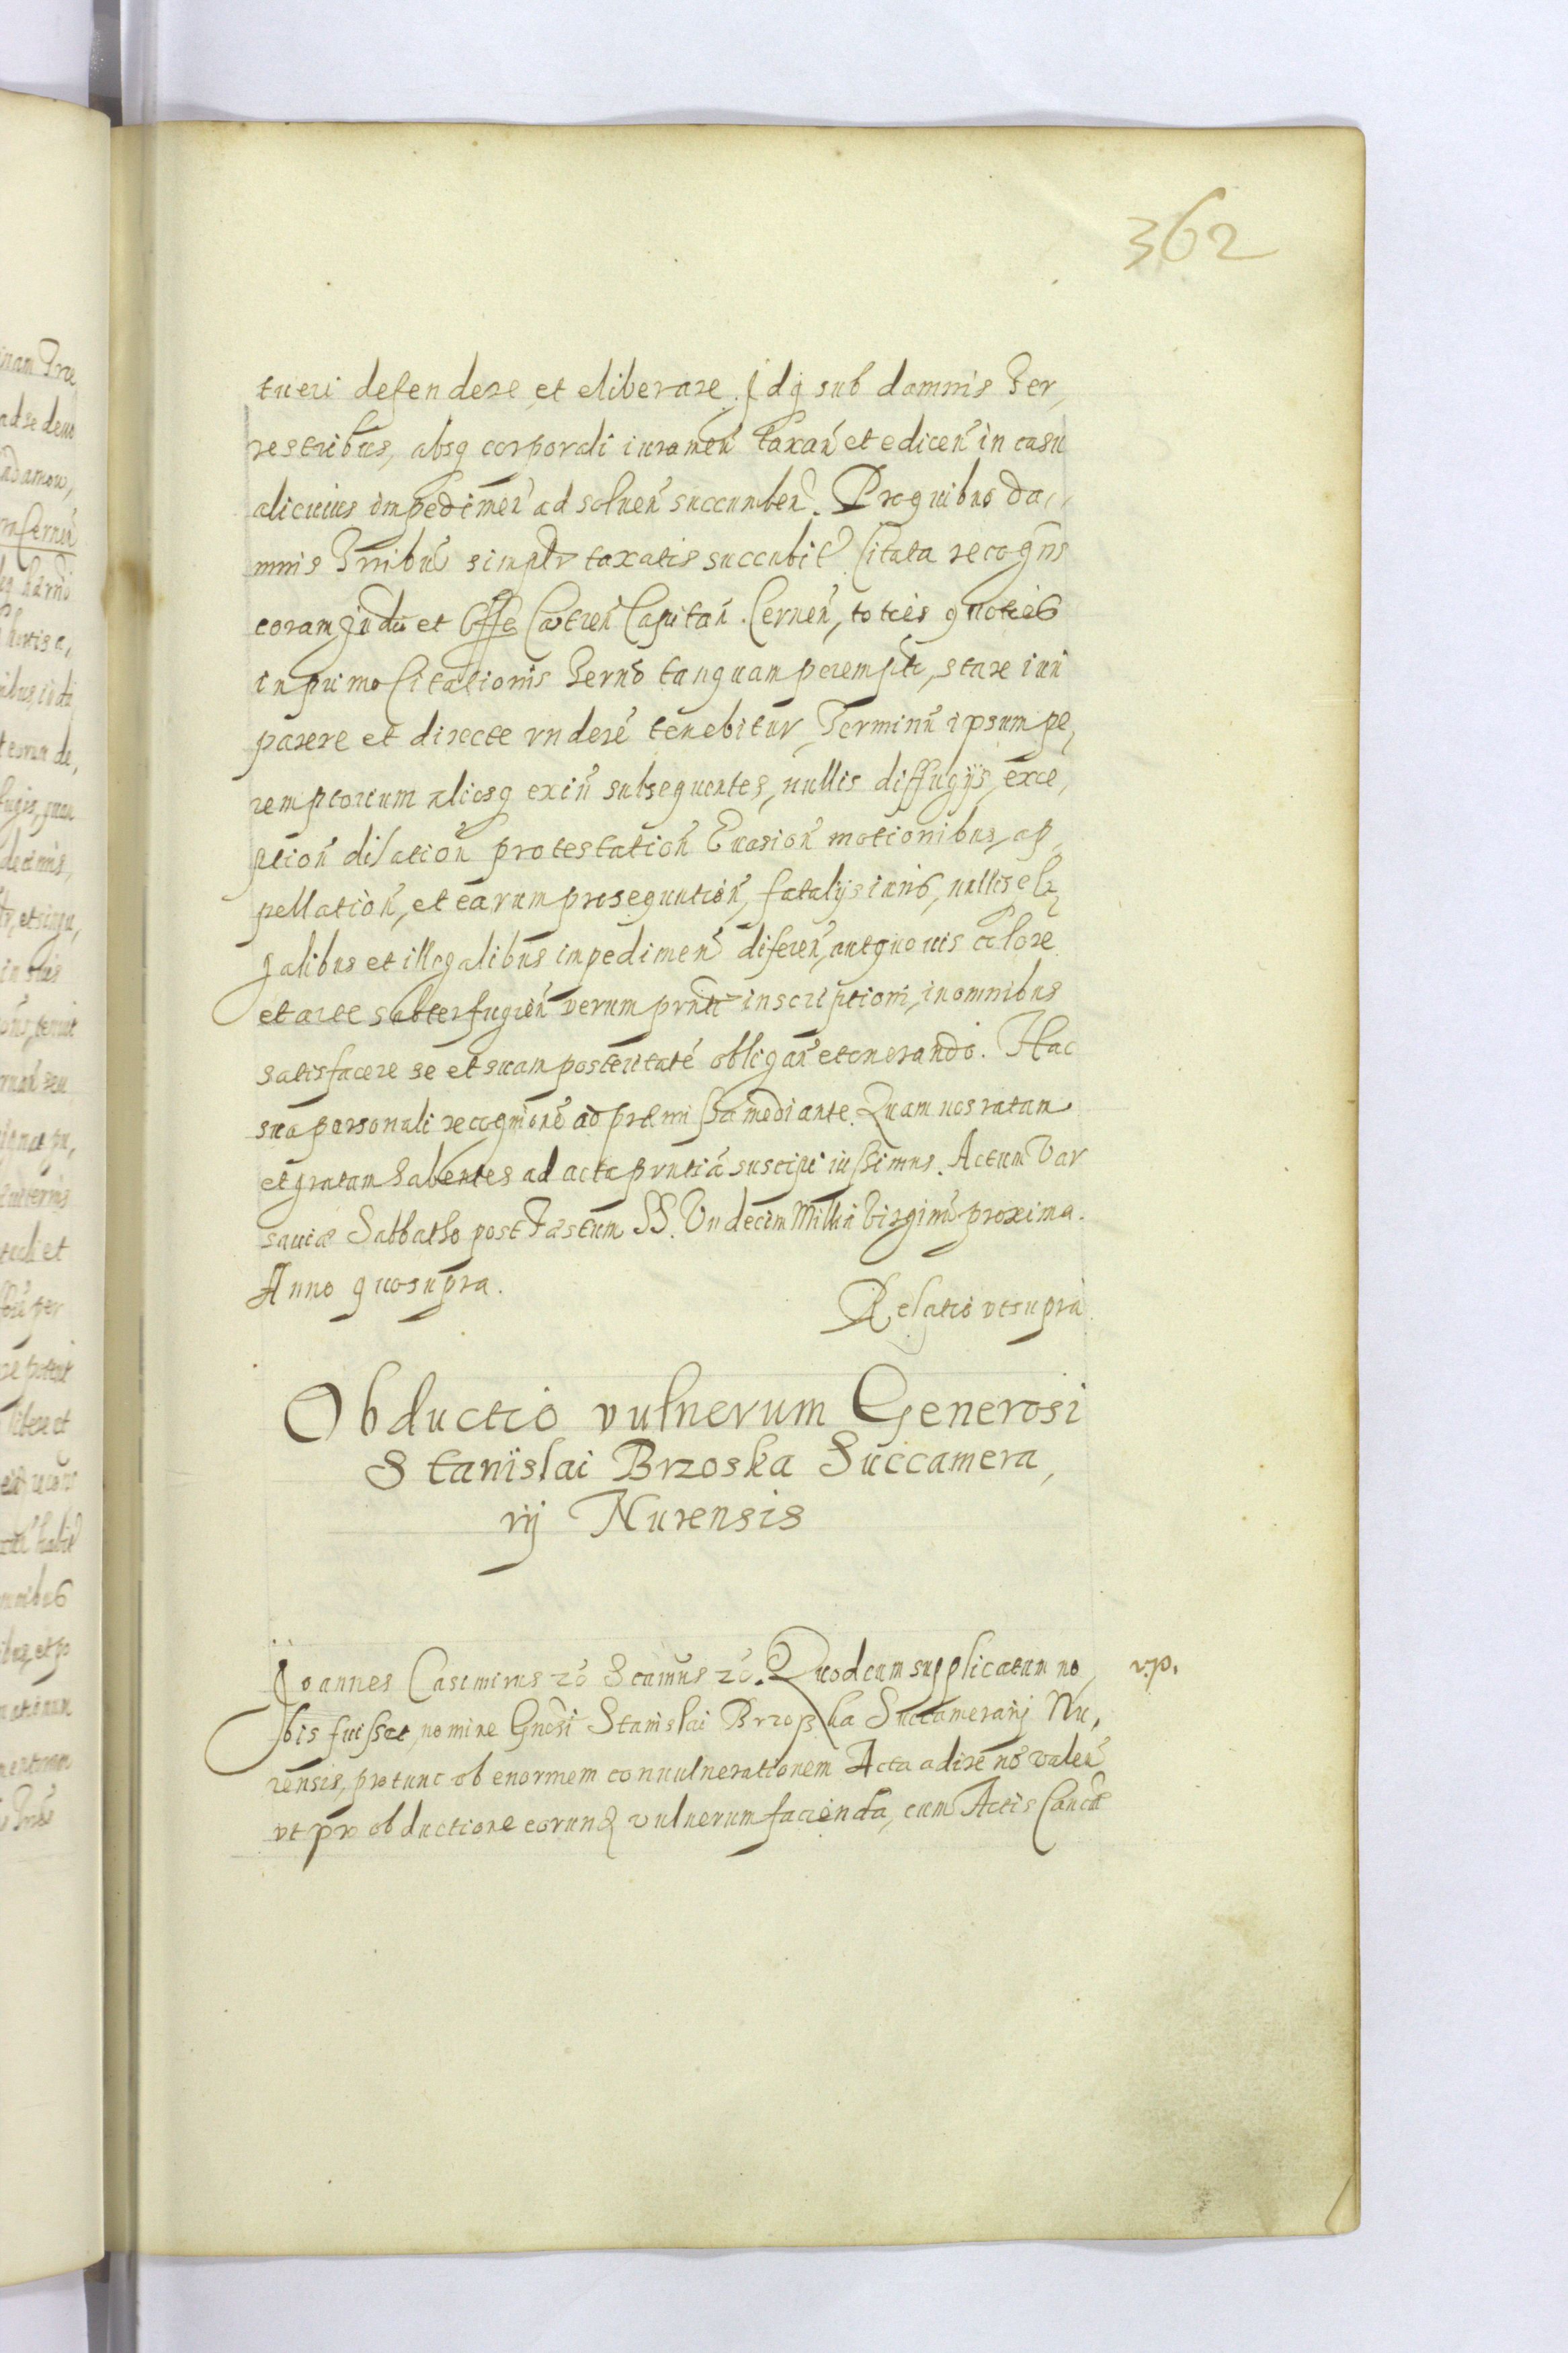 362
tueri defendere, et eliberare. Idq sub damnis Ter,
restribus, absq corporali iuramen̄ taxan̄ et edicen̄ in casu
alicuius impedimen̄ ad soluen̄ succumben̄. Pro quibus da,
mnis Trribus simplr taxatis succubit Citata recogn̄s
coram Judō et Offo Castren̄ Capitan̄ Cernen̄, toties quoties
in primo Citationis Termō tanquam peremptō, stare iuri
parere et directe rndere tenebitur, Terminū ipsum pe,
remptorium aliosq exin̄ subsequentes, nullis diffugijs, exce,
ption̄ dilation̄ protestation̄ Euasion̄ motionibus, ap,
pellation̄, et earum prosequution̄, fatalijs iuris, nullisq le,
galibus et illegalibus impedimen̄ diferen̄, aut quouis colore
et arte subterfugien̄ verum prnti inscriptioni, in omnibus
satisfacere se et suam posteritatē obligan̄ et onerando. Hac
sua personali recognōne ad præmissa mediante. Quam nos ratam
et gratam habentes ad acta prntia suscipi iussimus. Actum Var
sauiæ Sabbatho post Festum SS. Undecim Millia Virginū proxima.
Anno quo supra.
Relatio vt supra
Obductio vulnerum Generosi
Stanislai Brzoska Succamera,
rij Nurensis
Joannes Casimirus zc̄ Scamus zc̄. Quod cum supplicatum no, v.p.
bis fuisset, nomine Gnosi Stanislai Brzoska Succamerarij Nu,
rensis, pro tunc ob enormem conuulnerationem Acta adire nō valen̄
vt pro obductione eorundē vulnerum facienda, cum Actis Cancē